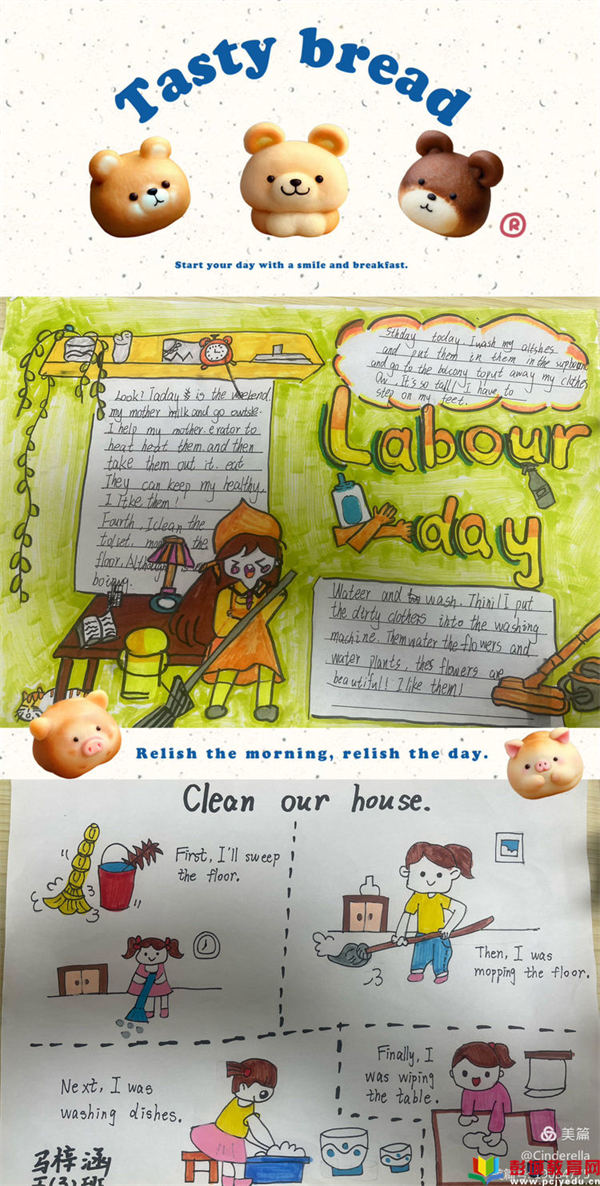 Tasty bread
®
Start your day with a smile and breakfast.
Look! Today is the weekend.
my mother milk and go outside.
I help my mother. erator to
heat heat them. and then
take them out it. eat
They can keep my healthy.
I like them!
Fourth, I clean the
the
floor. Although
boiung.
Sthday today. I wash my
and put them in them in the
and go to the balcony toput away my clothes
Ow. It's so tall! I have to
step on my feet.
Labour
day
Wateer and wash. Thini! I put
the dirty clothers into the washing
machine. Themwater the flowers and
water plants. thes flowers are
beautiful! I like them!
Relish the morning, relish the day.
Clean our house.
First, I'll sweep
the floor.
Then, I was
mopping the floor.
Next, I was
washing dishes.
Finally, I
was wiping
the table.
马梓涵
美篇
@Cinderella
www.pcjyedu.com